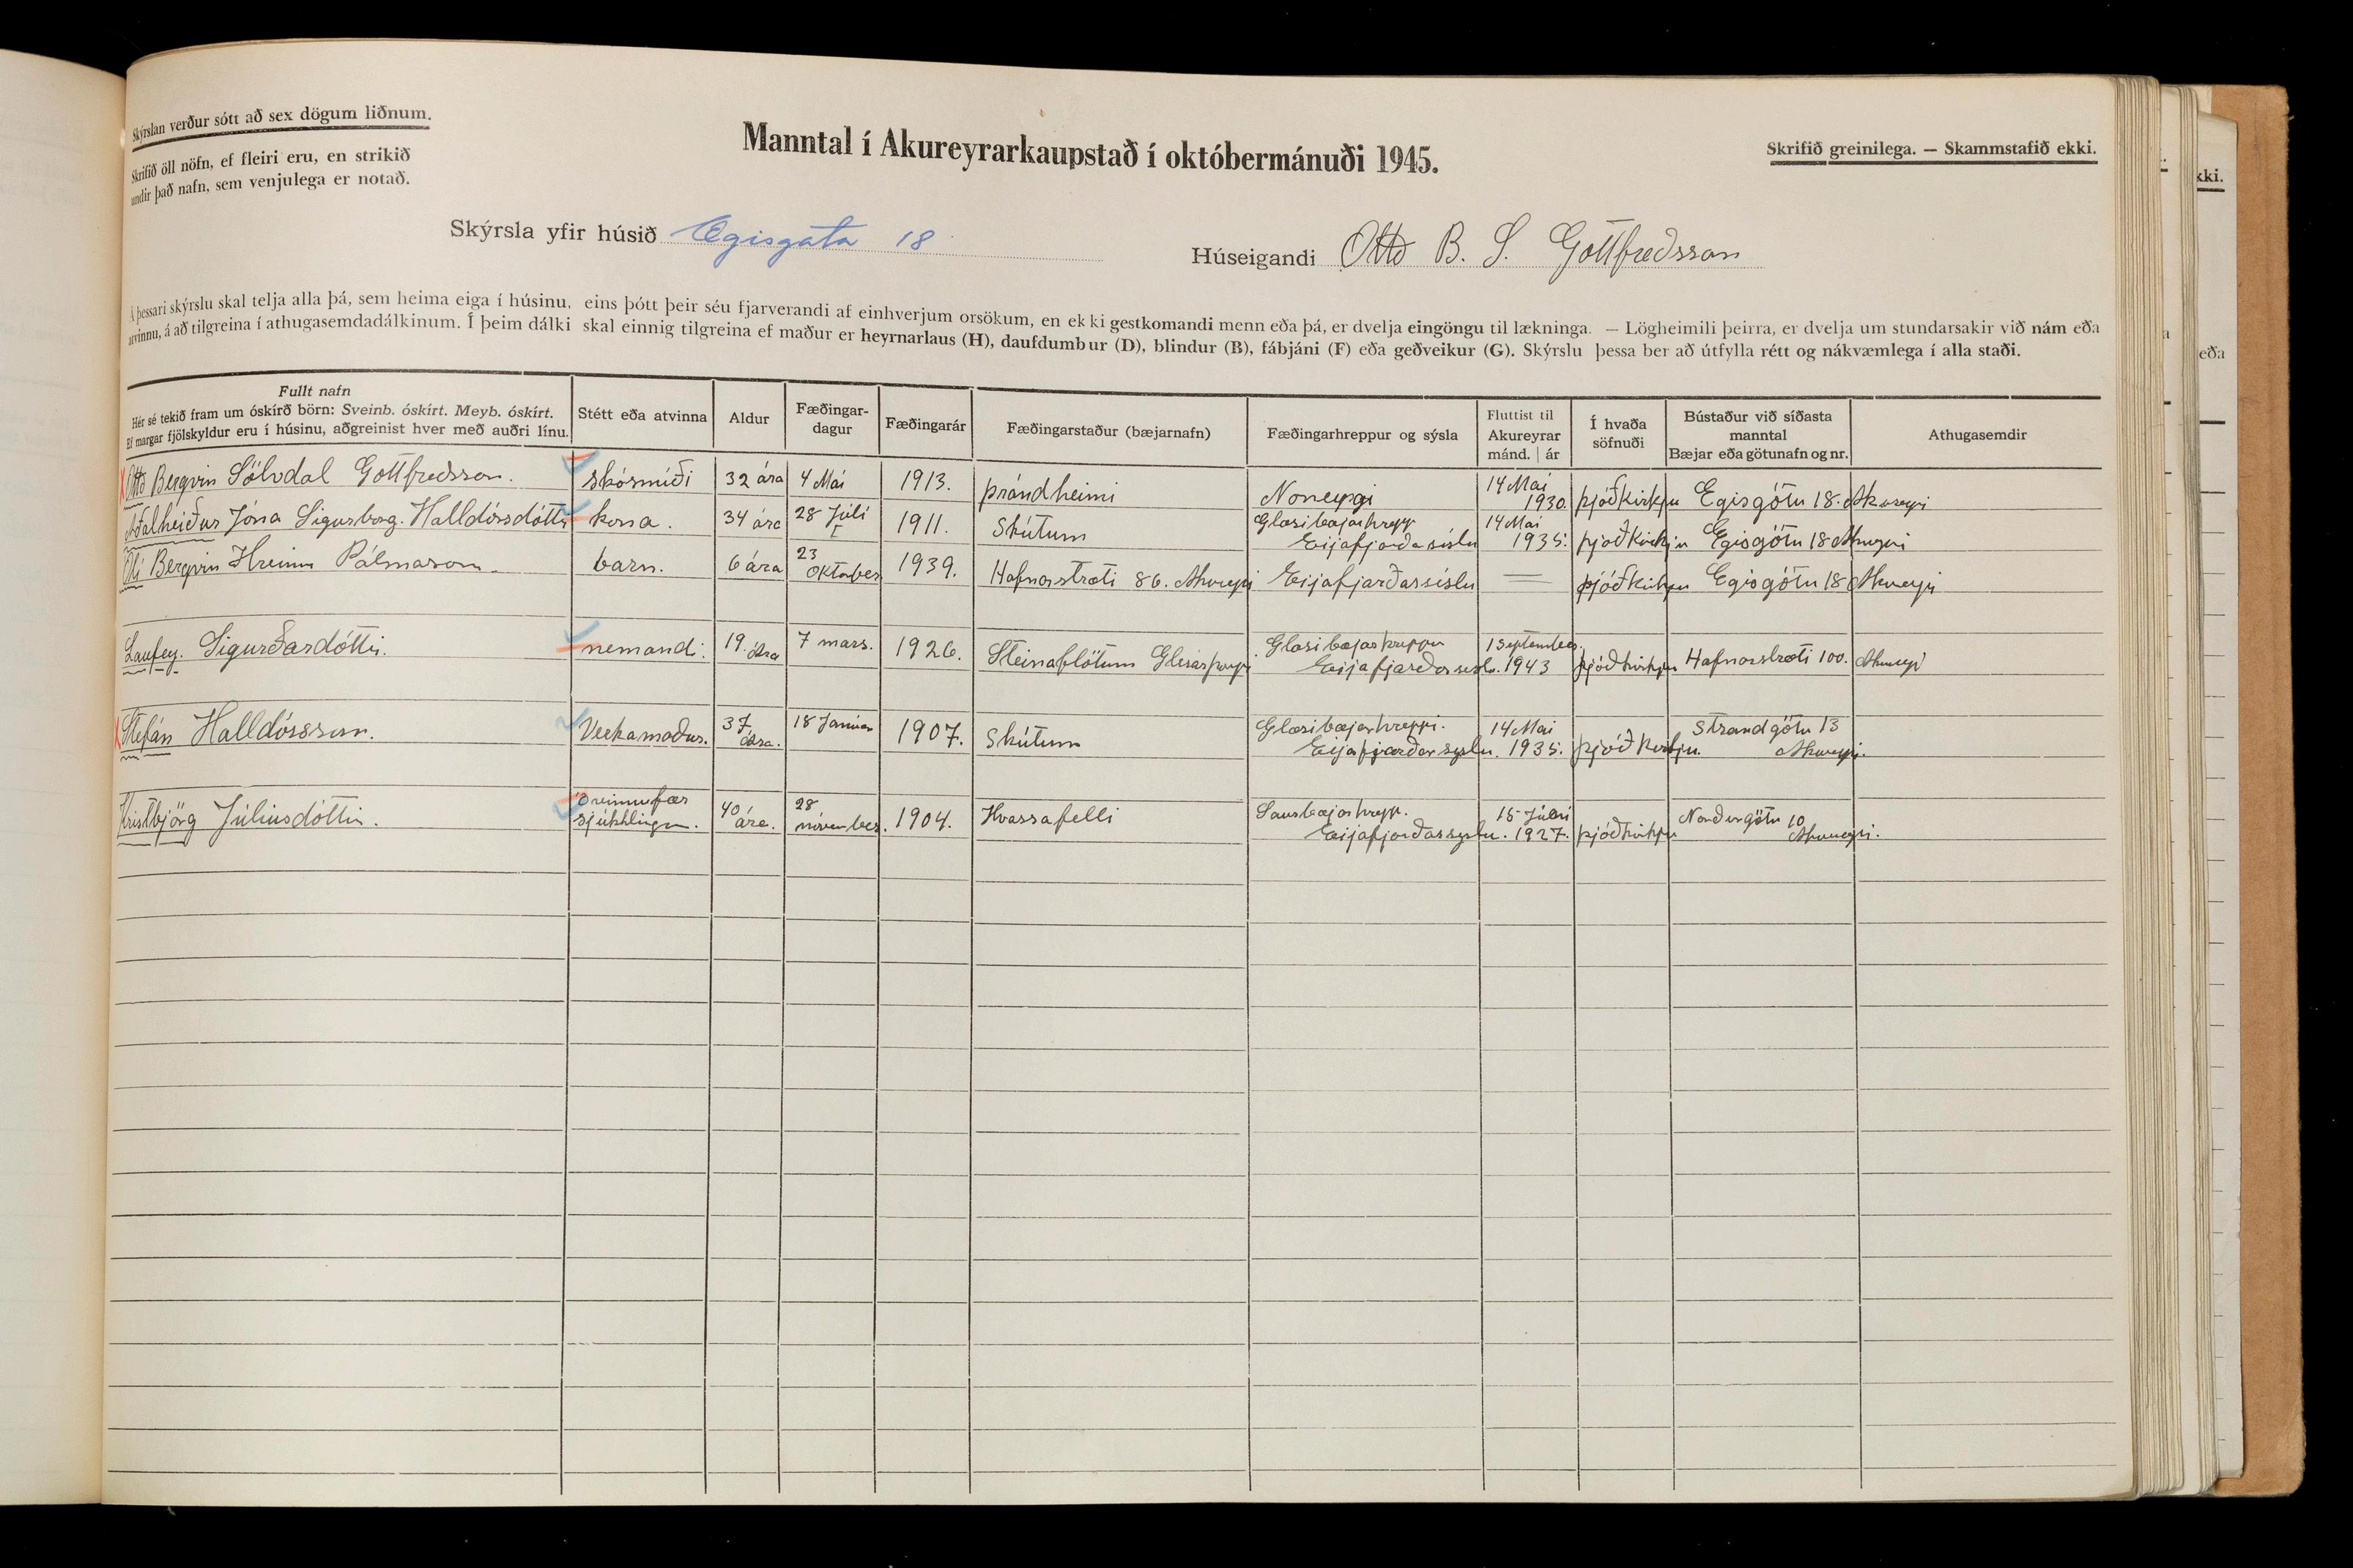 Skýrslan verður sótt að sex dögum liðnum.
Skrifið öll nöfn, ef fleiri eru, en strikið
undir það nafn, sem venjulega er notað.
Manntal í Akureyrarkaupstað í októbermánuði 1945.
Skrifið greinilega. — Skammstafið ekki.
Skýrsla yfir húsið Ægisgata 18
Húseigandi Otto B. S. Gottfredsson
Á þessari skýrslu skal telja alla þá, sem heima eiga í húsinu, eins þótt þeir séu fjarverandi af einhverjum orsökum, en ekki gestkomandi menn eða þá, er dvelja eingöngu til lækninga. — Lögheimili þeirra, er dvelja um stundarsakir við nám eða
atvinnu, á að tilgreina í athugasemdadálkinum. Í þeim dálki skal einnig tilgreina ef maður er heyrnarlaus (H), daufdumbur (D), blindur (B), fábjáni (F) eða geðveikur (G). Skýrslu þessa ber að útfylla rétt og nákvæmlega í alla staði.
Fullt nafn
Hér sé tekið fram um óskírð börn: Sveinb. óskírt. Meyb. óskírt.
Ef margar fjölskyldur eru í húsinu, aðgreinist hver með auðri línu.
Stétt eða atvinna
Aldur
Fæðingar-
dagur
Fæðingarár
Fæðingarstaður (bæjarnafn)
Fæðingarhreppur og sýsla
Fluttist til
Akureyrar
mánd. | ár
Í hvaða
söfnuði
Bústaður við síðasta
manntal
Bæjar eða götunafn og nr.
Athugasemdir
Otto Bergvin Sölvdal Gottfredsson. skósmíði 32 ára 4 Mái 1913. þrándheimi Noregi 14 Mai 1930. þjóðkirkju Egisgötu 18. Akureyri
Aðalheiður Jóna Sigurborg. Halldórsdóttir kona. 34 ára 28 Júlí 1911. Skútum Glæsibæjarhrepp Eijafjarðasíslu 14 Mai 1935. þjóðkirkju Egisgötu 18 Akureyri
Óli Bergvin Hreinn Pálmason. barn. 6 ára 23 Oktober 1939. Hafnarstræti 86. Akureyri Eijafjarðarsíslu — þjóðkirkju Egisgötu 18 Akureyri
Laufey. Sigurðardóttir. nemandi. 19. ára 7 mars. 1926. Steinaflötum Glerárþorpi Glæsibæjarhreppu Eijafjarðarsíslu. 1 September. 1943 þjóðkirkju Hafnarstræti 100. Akureyri
Stefán Halldórsson. Verkamaður. 37 ára. 18 Januar 1907. Skútum Glæsibæjarhreppi. Eijafjarðarsyslu. 14 Mai 1935. þjóðkirkju. Strandgötu 13 Akureyri.
Kristbjörg Júlíusdóttir. óvinnufær sjúkklingur. 40 ára. 28 nóvember. 1904. Hvassafelli Saurbæjarhrepp. Eijafjarðarsyslu. 15 Júlí 1927. þjóðkirkju Norðurgötu 10 Akureyri.